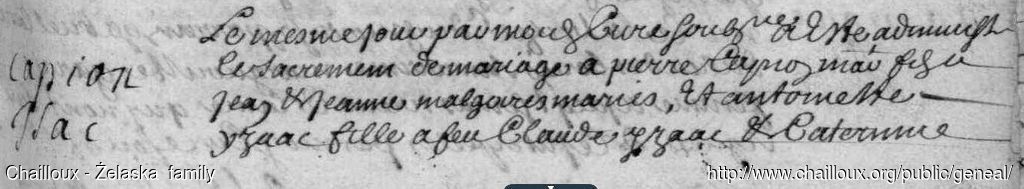 Le mesme jour par moy Cure soubz.ne a este administ
Capion
le sacrement de mariage a pierre Capion mar filz a
jean & jeanne malgoires maries, Et antoinette
Ysac
yzaac fille a feu Claude yzaac & Caterinne
Chailloux - Żelaska family
http://www.chailloux.org/public/geneal/